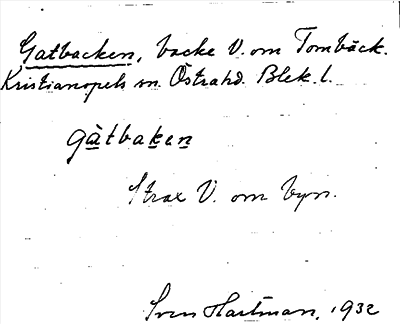 Gatbacken, backe V. om Tombäck.
Kristianopels sn. Östrahd. Blek. l.
gàtbaken
Strax V. om byn.
Sven Hartman, 1932